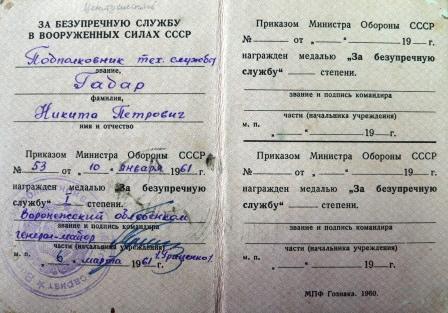 ЗА БЕЗУПРЕЧНУЮ СЛУЖБУ
В ВООРУЖЕННЫХ СИЛАХ СССР
Подполковник тех. службы
звание,
Габар
фамилия,
Никита Петрович
имя и отчество
Приказом Министра Обороны СССР
№ 53 от „ 10 " января 1961 г.
награжден медалью „За безупречную
службу" I степени.
Воронежский облвоенком
звание и подпись командира
генерал-майор
части (начальника учреждения)
м. п. „ 6 " марта 1961 г.
Приказом Министра Обороны СССР
№ от „ " 19 г.
награжден медалью „За безупречную
службу" степени.
звание и подпись командира
части (начальника учреждения)
м. п. „ " 19 г.
Приказом Министра Обороны СССР
№ от „ " 19 г.
награжден медалью „За безупречную
службу" степени.
звание и подпись командира
части (начальника учреждения)
м. п. „ " 19 г.
МПФ Гознака. 1960.